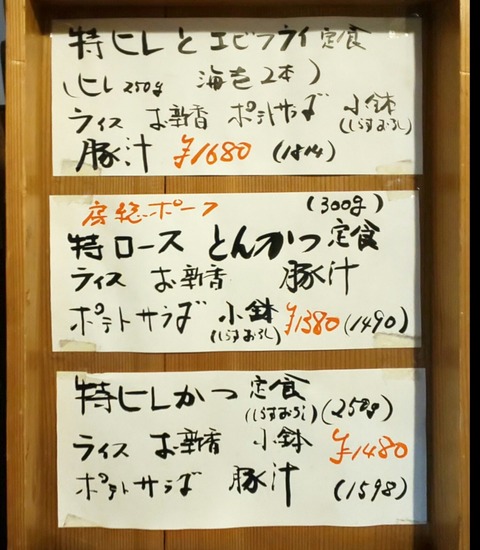 特ヒレとエビフライ定食
(ヒレ250g 海老2本)
ライス お新香 ポテトサラダ 小鉢
(しらすおろし)
豚汁 ¥1680 (1814)
房総ポーク (300g)
特ロース とんかつ定食
ライス お新香 豚汁
ポテトサラダ 小鉢 ¥1380(1490)
(しらすおろし)
特ヒレかつ 定食
(しらすおろし)(250g)
ライス お新香 小鉢 ¥1480
ポテトサラダ 豚汁 (1598)